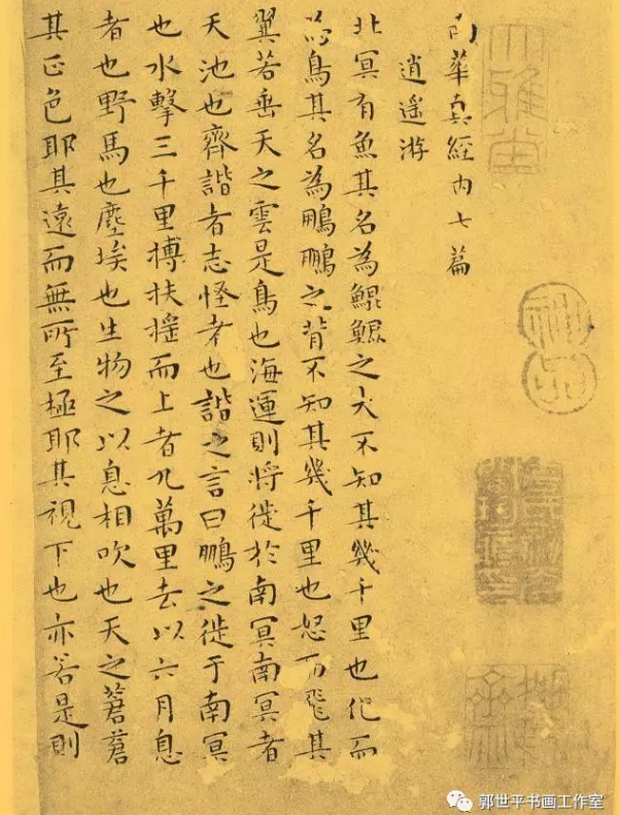 大雅堂
神品
南華真經内七篇
逍遥游
北冥有魚其名為鯤鯤之大不知其幾千里也化而
為鳥其名為鵬鵬之背不知其幾千里也怒而飛其
翼若垂天之雲是鳥也海運則將徙於南冥南冥者
天池也齊諧者志怪者也諧之言曰鵬之徙于南冥
也水擊三千里搏扶摇而上者九萬里去以六月息
者也野馬也塵埃也生物之以息相吹也天之蒼蒼
其正色耶其遠而無所至極耶其視下也亦若是則
郭世平书画工作室